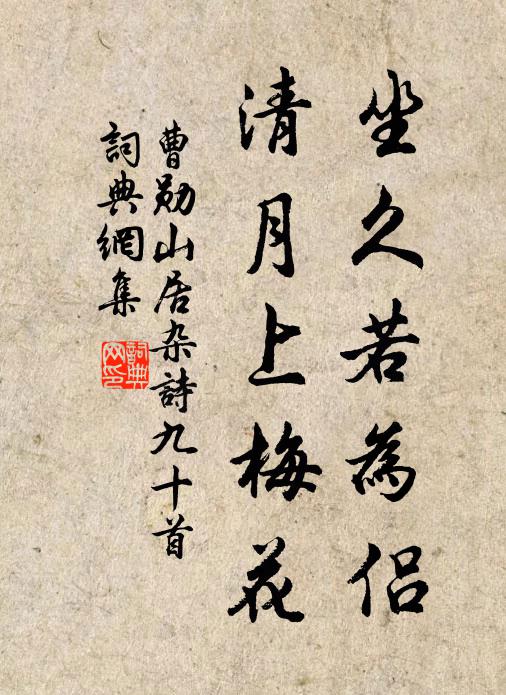 坐久若為侶
清月上梅花
曹勛山居杂詩九十首
詞典網集
詞典
网印